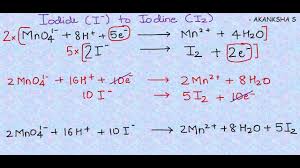 Iodide (I⁻) to Iodine (I₂)
- AKANKSHA S
2× [MnO₄¹⁻ + 8H⁺ + 5e⁻ → Mn²⁺ + 4H₂O]
5× [2I⁻ → I₂ + 2e⁻]
2MnO₄¹⁻ + 16H⁺ + 10e⁻ → 2Mn²⁺ + 8H₂O
10 I⁻ → 5 I₂ + 10e⁻
2MnO₄¹⁻ + 16H⁺ + 10 I⁻ → 2Mn²⁺ + 8H₂O + 5I₂